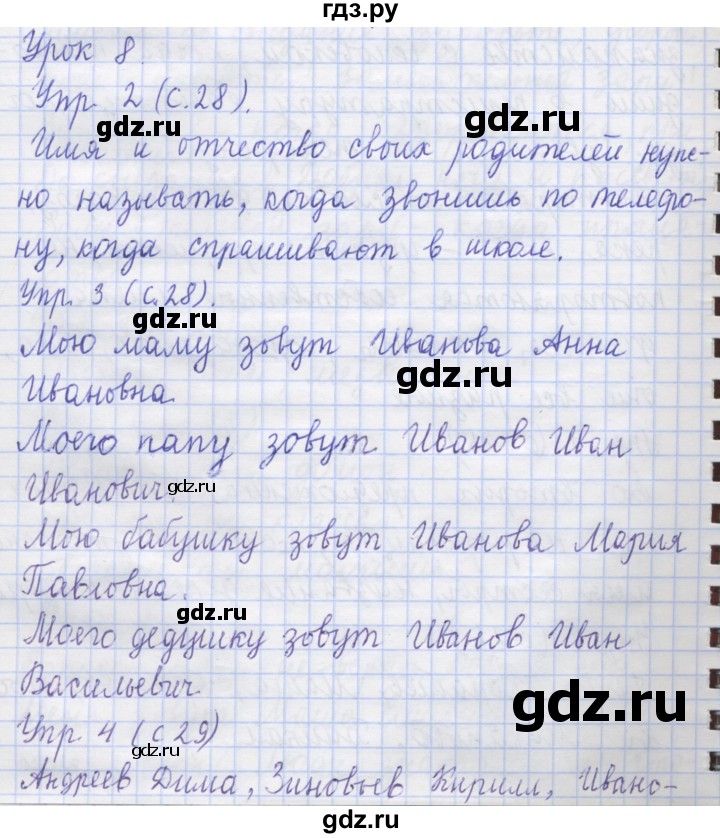 гдз.ру
Урок 8.
Упр. 2 (с.28).
gdz.ru
gdz.ru
Имя и отчество своих родителей нуж-
но называть, когда звонишь по телефо-
ну, когда спрашивают в школе.
Упр. 3 (с.28).
gdz.ru
Мою маму зовут Иванова Анна
gdz.ru
Ивановна.
Моего папу зовут Иванов Иван
Иванович.
gdz.ru
Мою бабушку зовут Иванова Мария
Павловна.
gdz.ru
Моего дедушку зовут Иванов Иван
Васильевич
gdz.ru
Упр. 4 (с 29)
Андреев Дима, Зиновьев Кирилл, Ивано-
гдз.ру